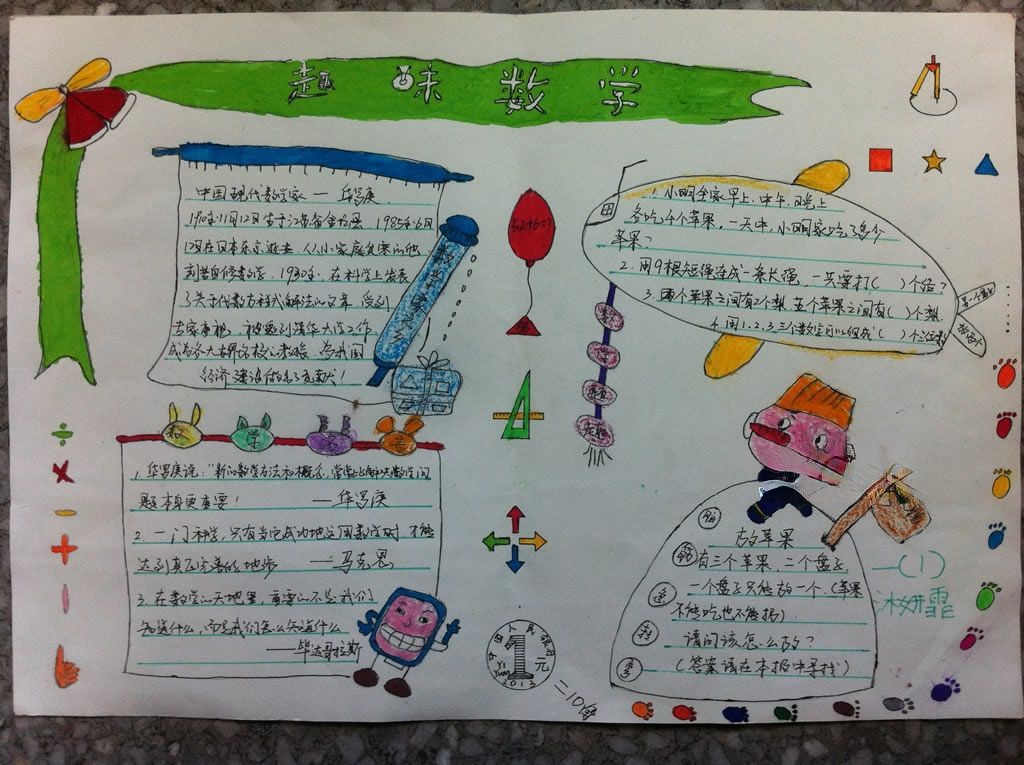 趣味数学
中国现代数学家—华罗庚
1910年11月12日生于江苏省金坛县,1985年6月
12日在日本东京逝世
刻苦自修数学,1930年,在科学上发表
了关于代数方程式解法的文章,受到
专家重视,被邀到清华大学工作,
经济建设作出了贡献!
52+6=?
1.小明全家早上、中午、晚上
各吃4个苹果,一天中,小明家吃了多少个
苹果?
2.用9根短绳连成一条长绳,一共要打( )个结?
3.两个苹果之间有2个梨,五个苹果之间有( )个梨
4.用1、2、3三个数字可以组成( )个三位数
数学
1.华罗庚说:"新的数学方法和概念,常常比解决数学问
题本身更重要!
—华罗庚
2.一门科学,只有当它成功地运用数学时,才能
达到真正完善的地步 —马克思
3.在数学的天地里,重要的不是我们
知道什么,而是我们怎么知道什么
—毕达哥拉斯
中国人民银行
1元
YI YUAN
2012
=10角
脑筋急转弯
放苹果
有三个苹果,二个盘子,
一个盘子只能放一个.(苹果
不能吃也不能扔)
请问该怎么放?
(答案请在本报中寻找)
一(1)